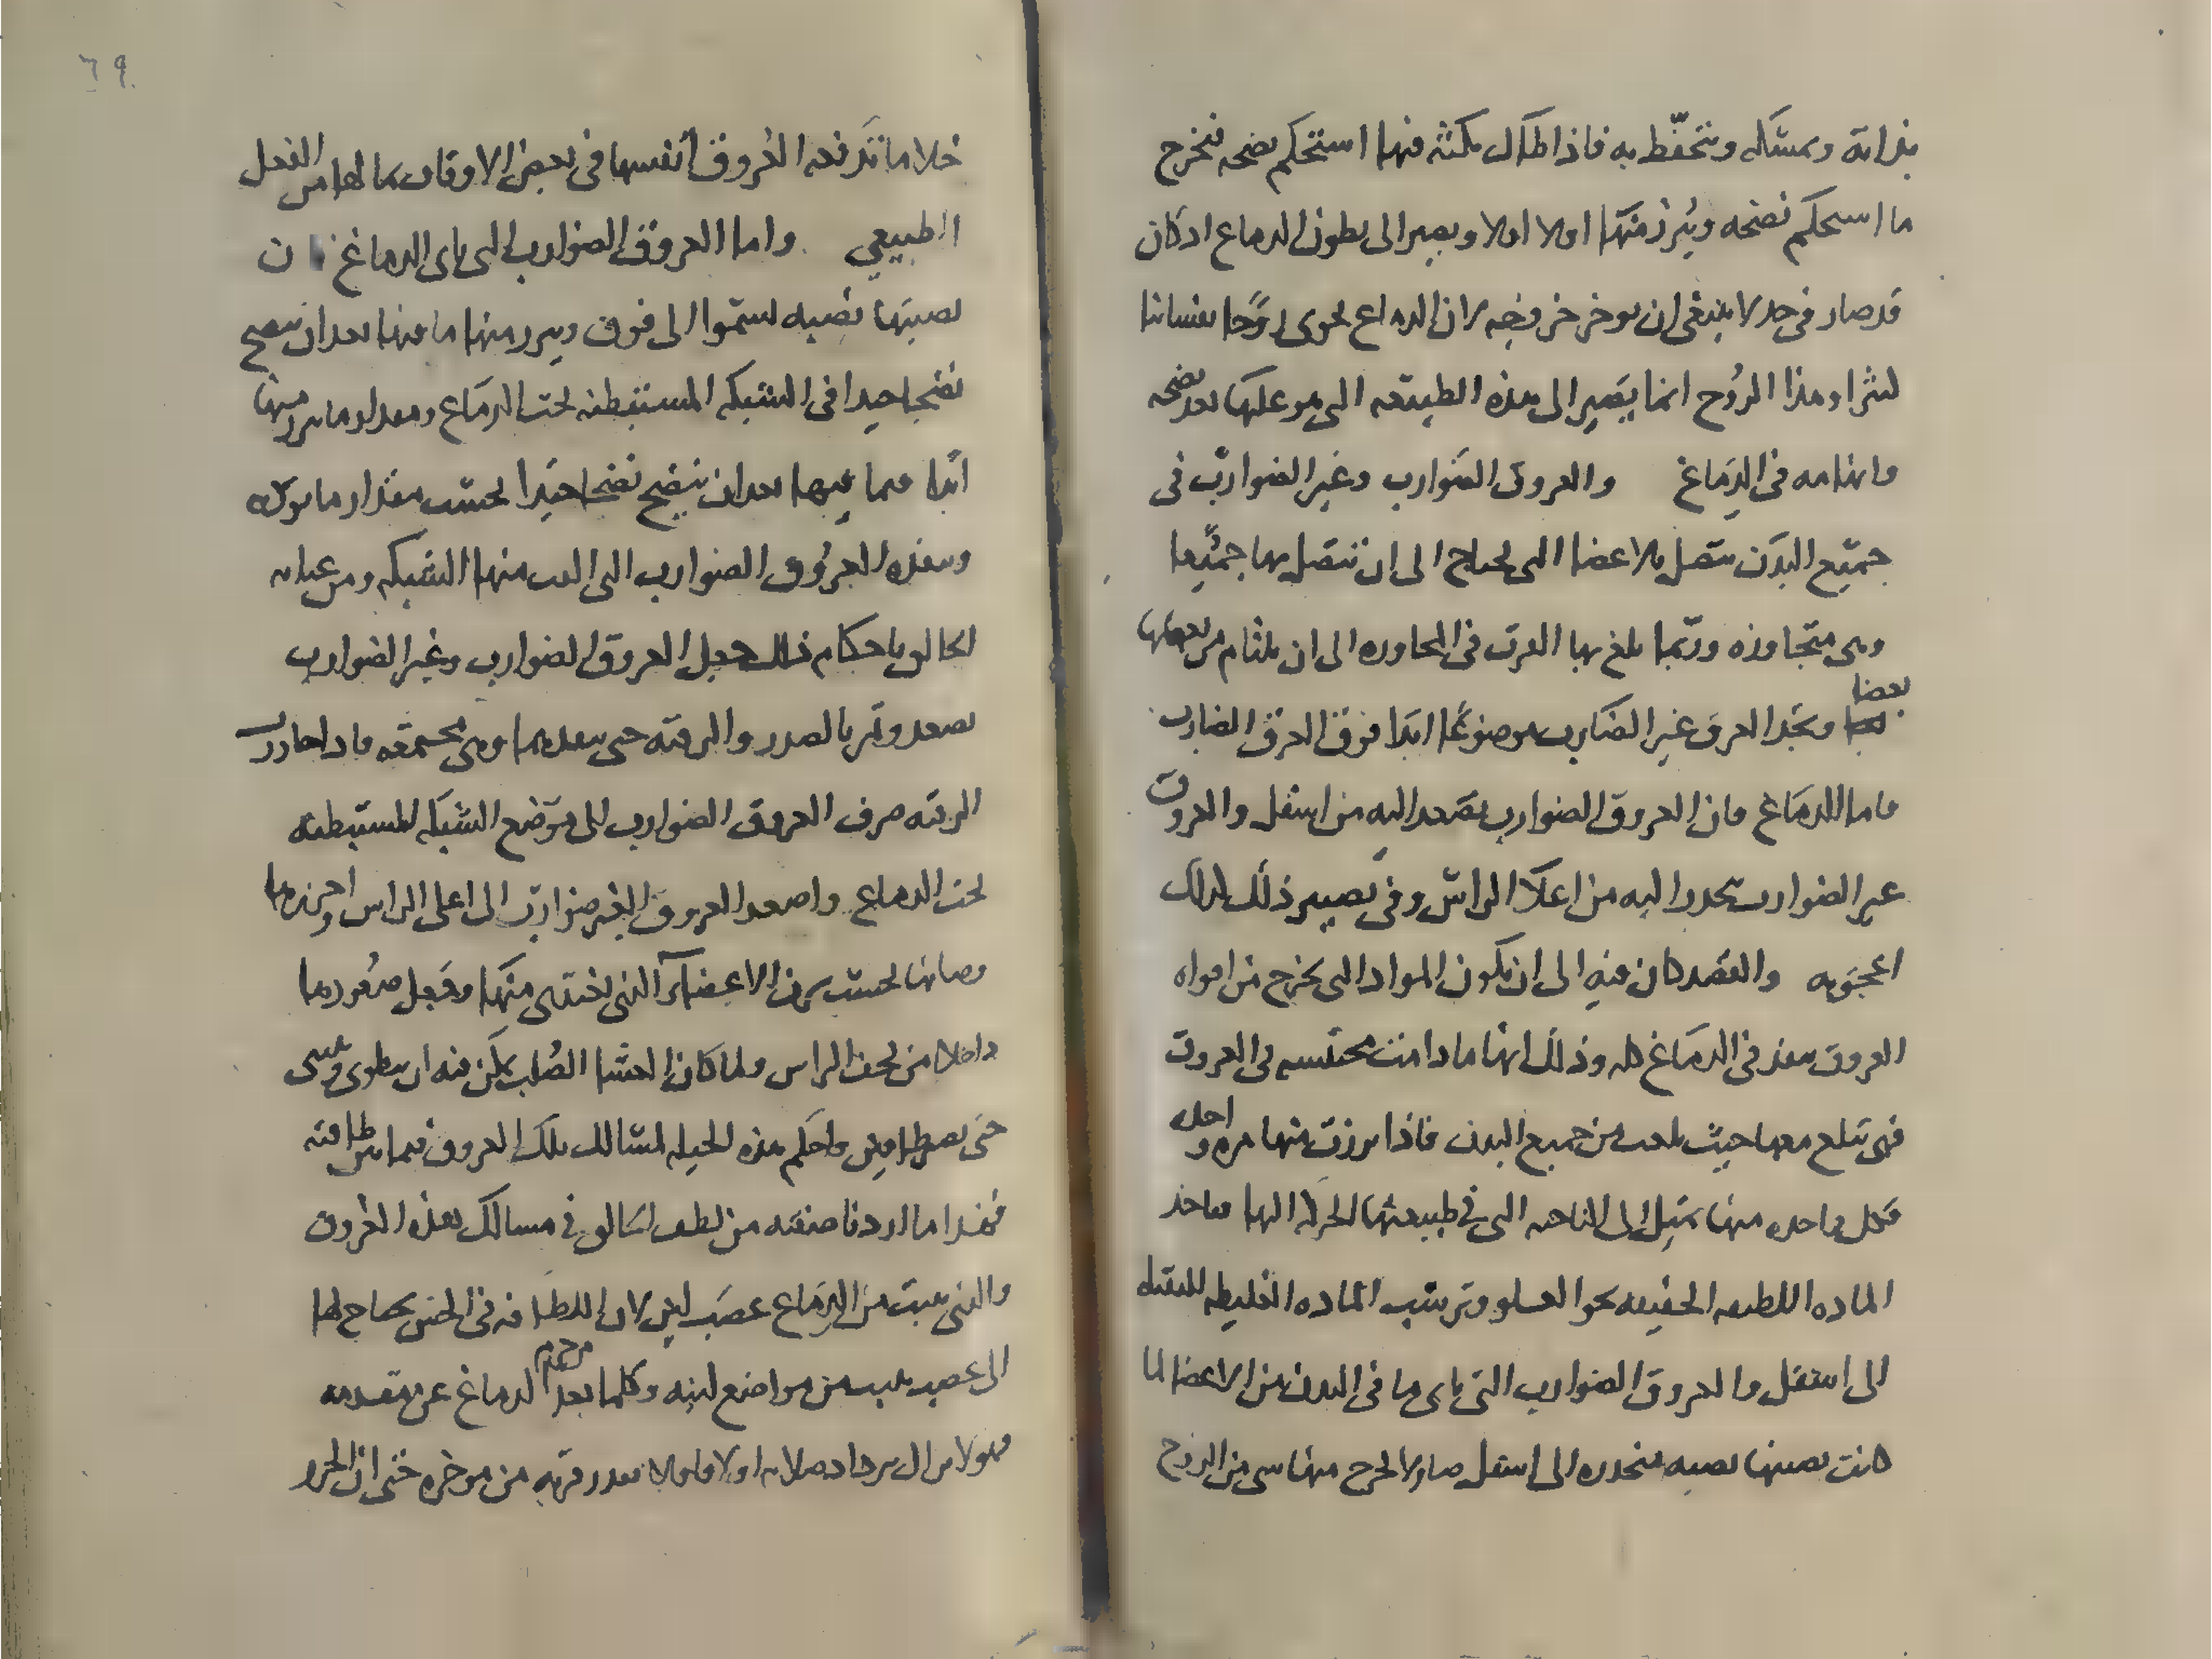 بذاته وىمسكه وىتحفّظ به فاذا طال مكثه فيها استحكم نضجه فىخرج
ما استحكم نضجه ويُبرز منها اولا اولا ويصير الى بطون الدماغ اذ كان
قد صار فى حد لا ينبغى ان يوخر خروجه لان الدماغ يحوى رُوحًا نفسانيا
كثيرا وهذا الرُوح انما يَصير الى هذه الطبيعه التى هو عليها بعد نضجه
وانهامه فى الدِمَاغ والعروق الضوارب وغير الضوارب فى
جميع البدَن ىتصل بالاعضا التى يحتاج الى ان تتصل بها جميعا
وهى متجاوره وربّما بلغ بها القرب فى المجاوره الى ان يلتام من بعضها
بعضا وتجد العرق غير الضَارب موضوعًا ابدا فوق العرق الضارب
فاما الدمَاغ فان العروق الضوارب تصعد اليه من اسفل والعروق
غير الضوارب تنحدر اليه من اعلا الراس وفى تصيير ذلك كذلك
اعجوبه والقصد كان فيه الى ان تكون المواد التى تخرج من افواه
العروق تنفذ فى الدمَاغ كله وذلك انها ما دامت محتبسه فى العروق
فهى تبلغ معها حيث بلغت من جميع البدن فاذا برزت منها مره واحده
فكل واحده منها تميل الى الناحيه التى فى طبيعتها الحركه اليها فتاخذ
الماده اللطيفه الخفيفه نحو العلو وترسب الماده الغليظه الثقيله
الى اسفل والعروق الضوارب التى تاتى ما فى البدن من الاعضا لما
كانت نصبتها نصبه منحدره الى اسفل صار لا يخرج منها شى من الروح
خلا ما تدفعه العُروق انفسها فى بعض الاوقات بما لها من الفعل
الطبيعي واما العروق الضوارب التى تاتى الدماغ فان
نصبتها نصبه تسمو الى فوق ويبرز منها ما فيها بعد ان ينضج
نضجا جيدا فى الشبكه المستبطنه تحت الدمَاغ ومقدار ما يبرز منها
ابدا مما فيها بعد ان ينضج نضجا جيدا بحسب مقدار ما توكه
وىنفذه العرُوق الضوارب التى الفت منها الشبكه ومن عنايه
الخالق باحكام ذلك جعل العروق الضوارب وغير الضوارب
تصعد وتمر بالصدر والرقبه حتى ىىعدىهما وهى مجتمعه فاذا جاوزت
الرقبه صرف العروق الضوارب الى موضع الشبكه المستبطنه
تحت الدماغ واصعد العروق الغير ضوارب الى اعلى الراس واحرزها
وصانها بحسب شرف الاعضآ التى تغتذى منها وجعل صعودها
داخلا من قحف الراس ولما كان الغشا الصُلب يمكن فيه ان ينطوى وينثنى
حتى يصير طاقين احكم هذه الحيله لمسالك تلك العروق فيما بين طاقيه
فهذا ما اردنا صفته من لطف الخالق فى مسالك هذه العُروق
والتى ينبت من الدمَاغ عصَب لين لان اللطافه فى الحس يحتاج لها
الى عصب ينبت من مواضع لينه وكلما بعد موخر الدماغ عن مقدمه
فهو لا يزال يزداد صلابه اولا فاولا بقدر قربه من موخره حتى ان الجزء